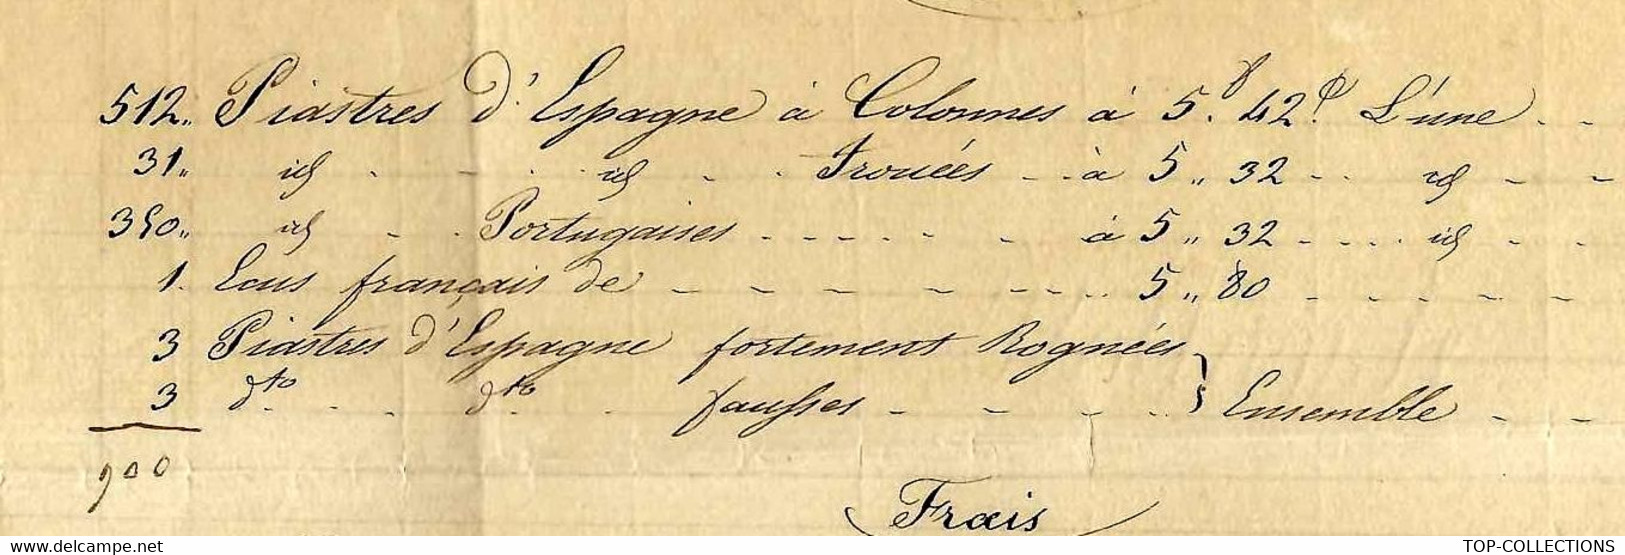 512„ Piastres d'Espagne à Colonnes à 5.f 42.c L'une - -
31„ id - - - id - - Trouées - - à 5 „ 32 - - id - -
350„ id - - Portugaises - - - - - - à 5 „ 32 - - - - id - -
1. Ecus français de - - - - - - - - 5 „ 80 - - - - -
3 Piastres d'Espagne fortement Rognées
3 dto - - - dto - - fausses - - - - } Ensemble - -
900
Frais
TOP-COLLECTIONS